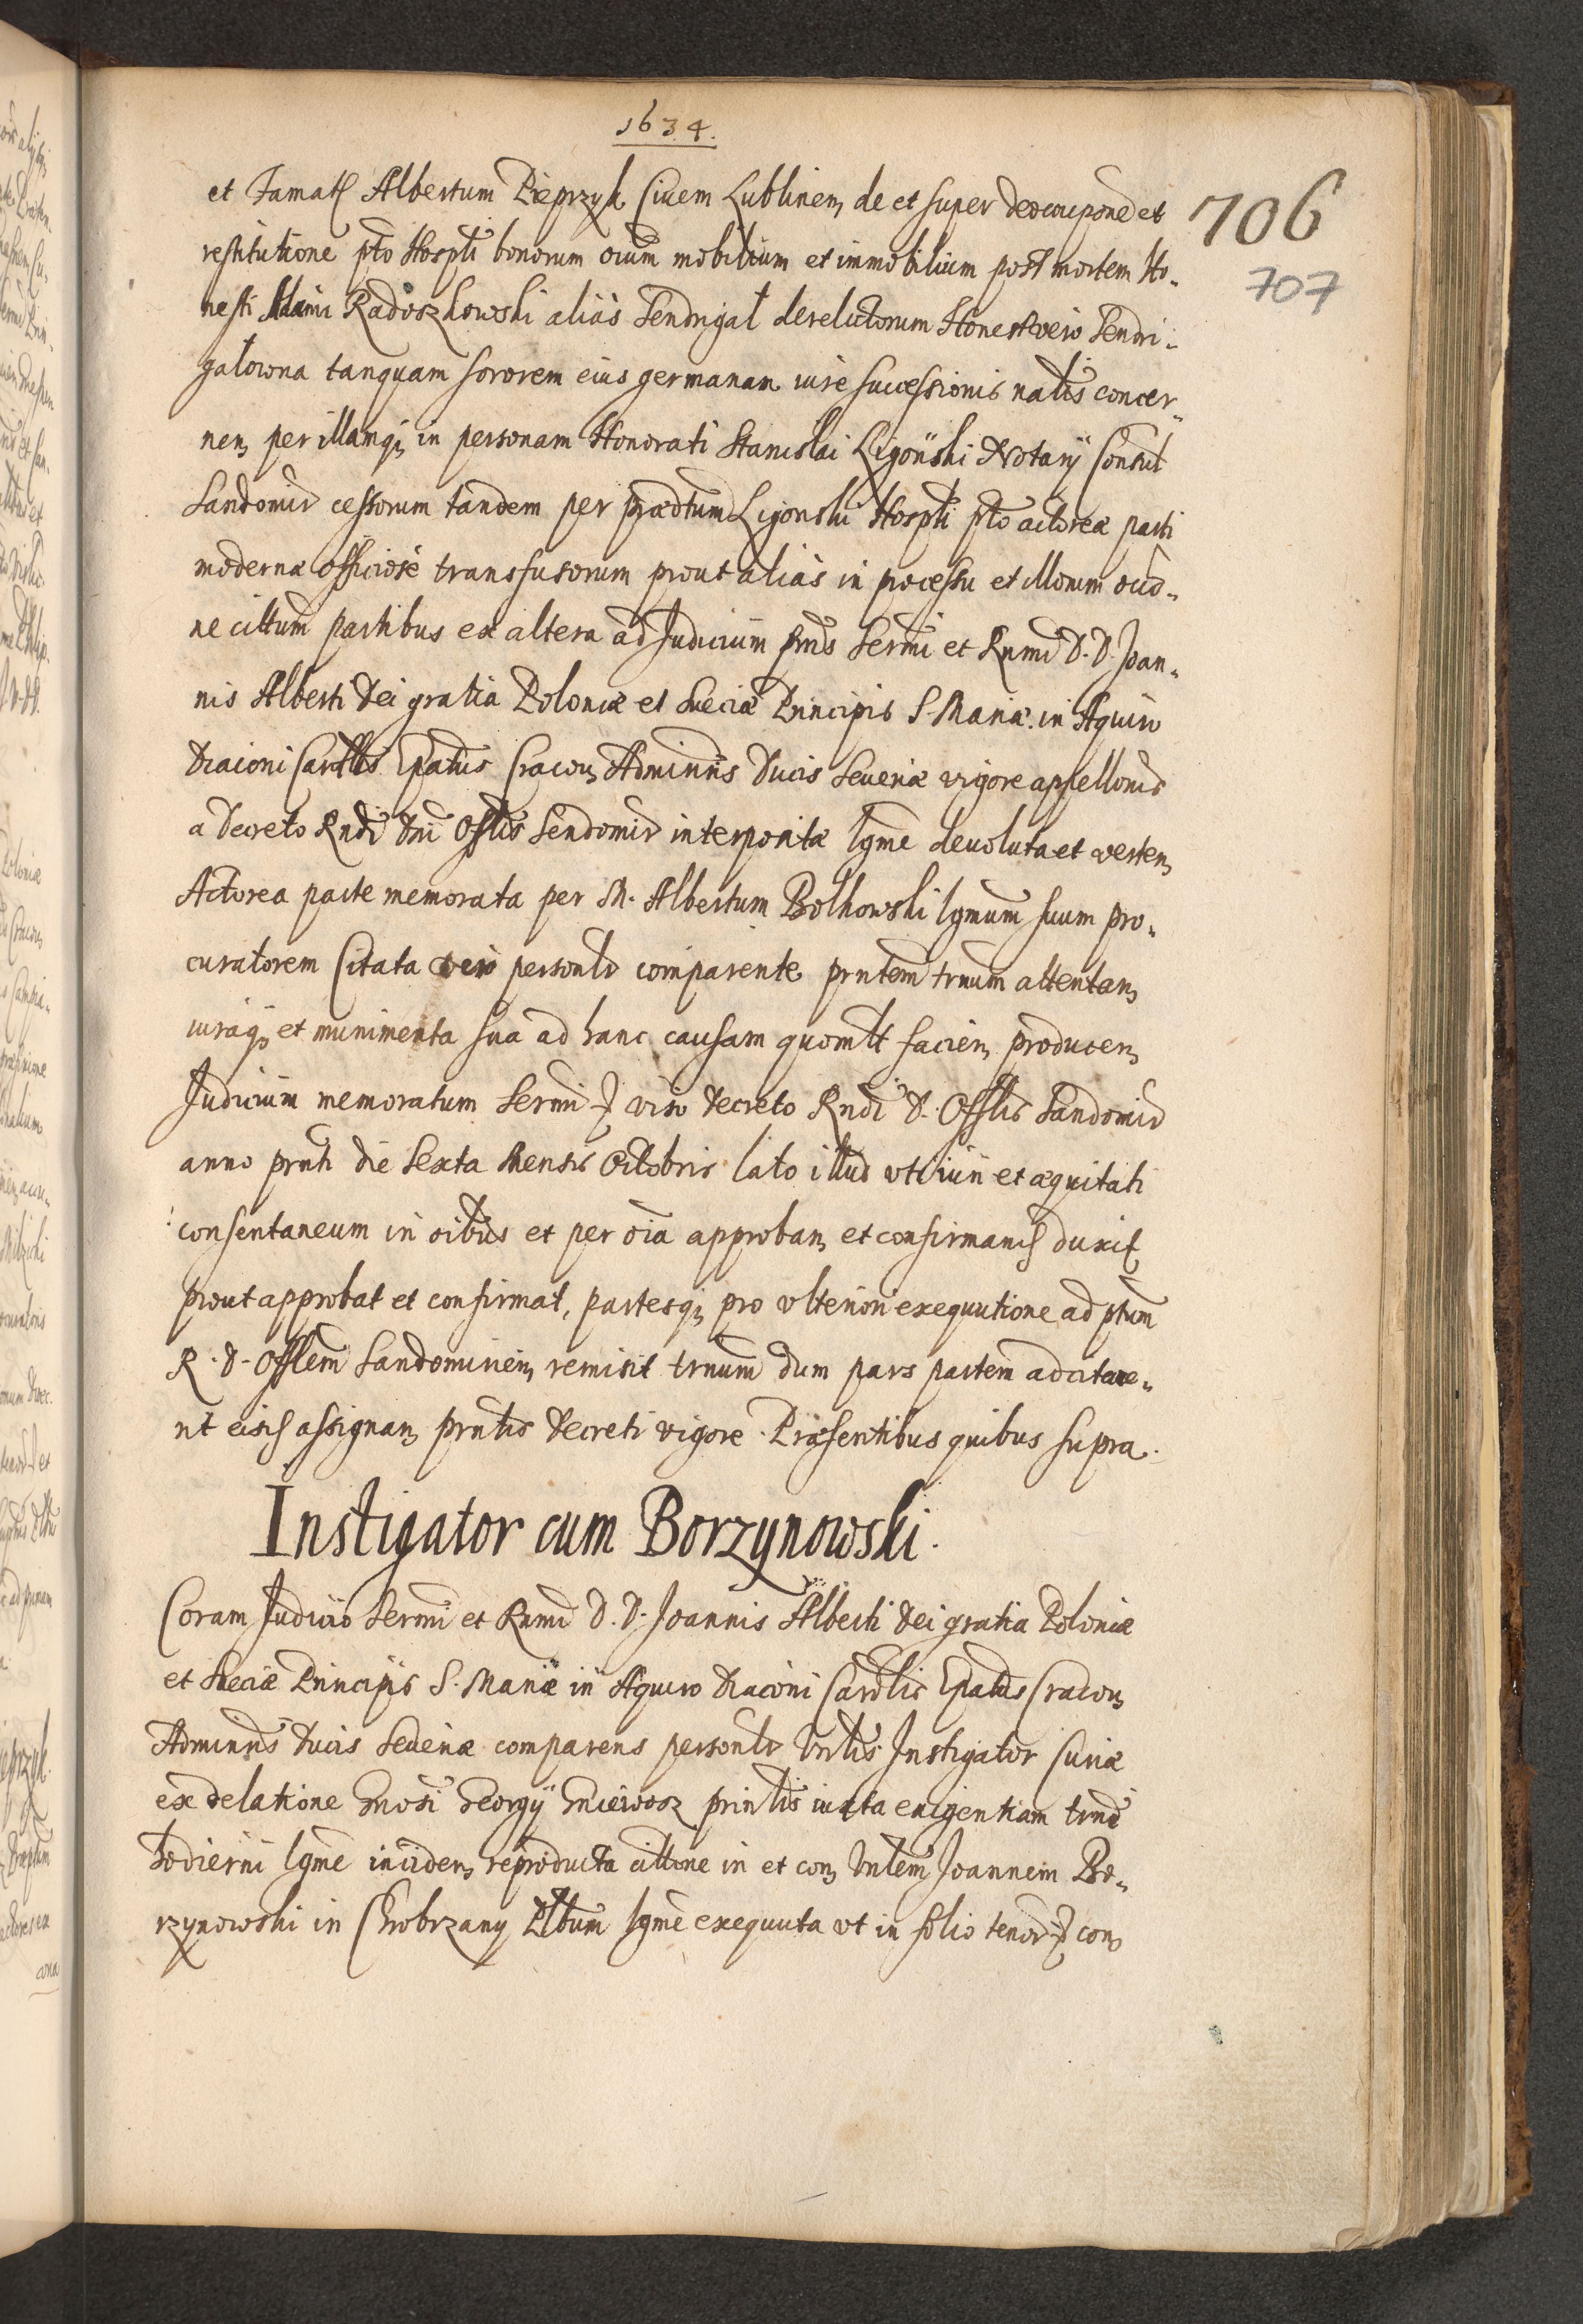 1634.
706
707
et Famatū Albertum Pieprzyk Civem Lublinen, de et super deoccupone et
restitutione pto Hospti bonorum oium mobilium et immobilium post mortem Ho-
nesti Adami Radoszkowski alias Sendrigał derelictorum Honest vero Sendri-
gałowna tanquam sororem eius germanam iure successionis natlis concer-
nen, per illamq, in personam Honorati Stanislai Ligoński Notarij Consul
Sandomir cessorum tandem per prædtum Ligonski Hospti pto actoreæ parti
modernæ officiose transfusorum prout alias in processu et illorum occo-
ne cittum partibus ex altera ad Judicium pnds Sermi et Rnmi D. D. Joan-
nis Alberti Dei gratia Poloniæ et Sueciæ Principis S. Mariæ in Aquiro
Diaconi Cardlis Epatus Cracou, Adminris Ducis Seueriæ vigore appellonis
a decreto Rndi Dni Offlis Sendomir interpositæ lgme deuoluta et verten,
Actorea parte memorata per M. Albertum Bolkowski lgmum suum pro-
curatorem Citata vero personlr comparente prntem trnum attentan,
iuraq, et munimenta sua ad hanc causam quomlt facien, producen,
Judicium memoratum Sermi viso decreto Rndi D. Offlis Sandomir
anno prnti die sexta Mensis Octobris lato illud uti iuri et æquitati
consentaneum in oibus et per oia approban, et confirmand duxit,
prout approbat et confirmat, partesq, pro ulteriori exequutione ad ptum
R. D. Offlem Sandomirien, remisit trnum dum pars partem adcitare-
nt eisd assignan, prntis decreti vigore. Præsentibus quibus supra.
Instigator cum Borzynowski.
Coram Judicio Sermi et Rnmi D. D. Joannis Alberti Dei gratia Poloniæ
et Sueciæ Principis S. Mariæ in Aquiro Diaconi Cardlis Epatus Cracou,
Adminris Ducis Seueriæ comparens personlr Vnlis Instigator Curiæ
ex delatione Gnosi Georgij Gniewosz prinlis iuxta exigentiam trni
hodierni lgme inciden, reproducta cittone in et con, Vnlem Joannem Bo-
rzynowski in Chobrzany Plbum lgme exequuta ut in folio tenor con,